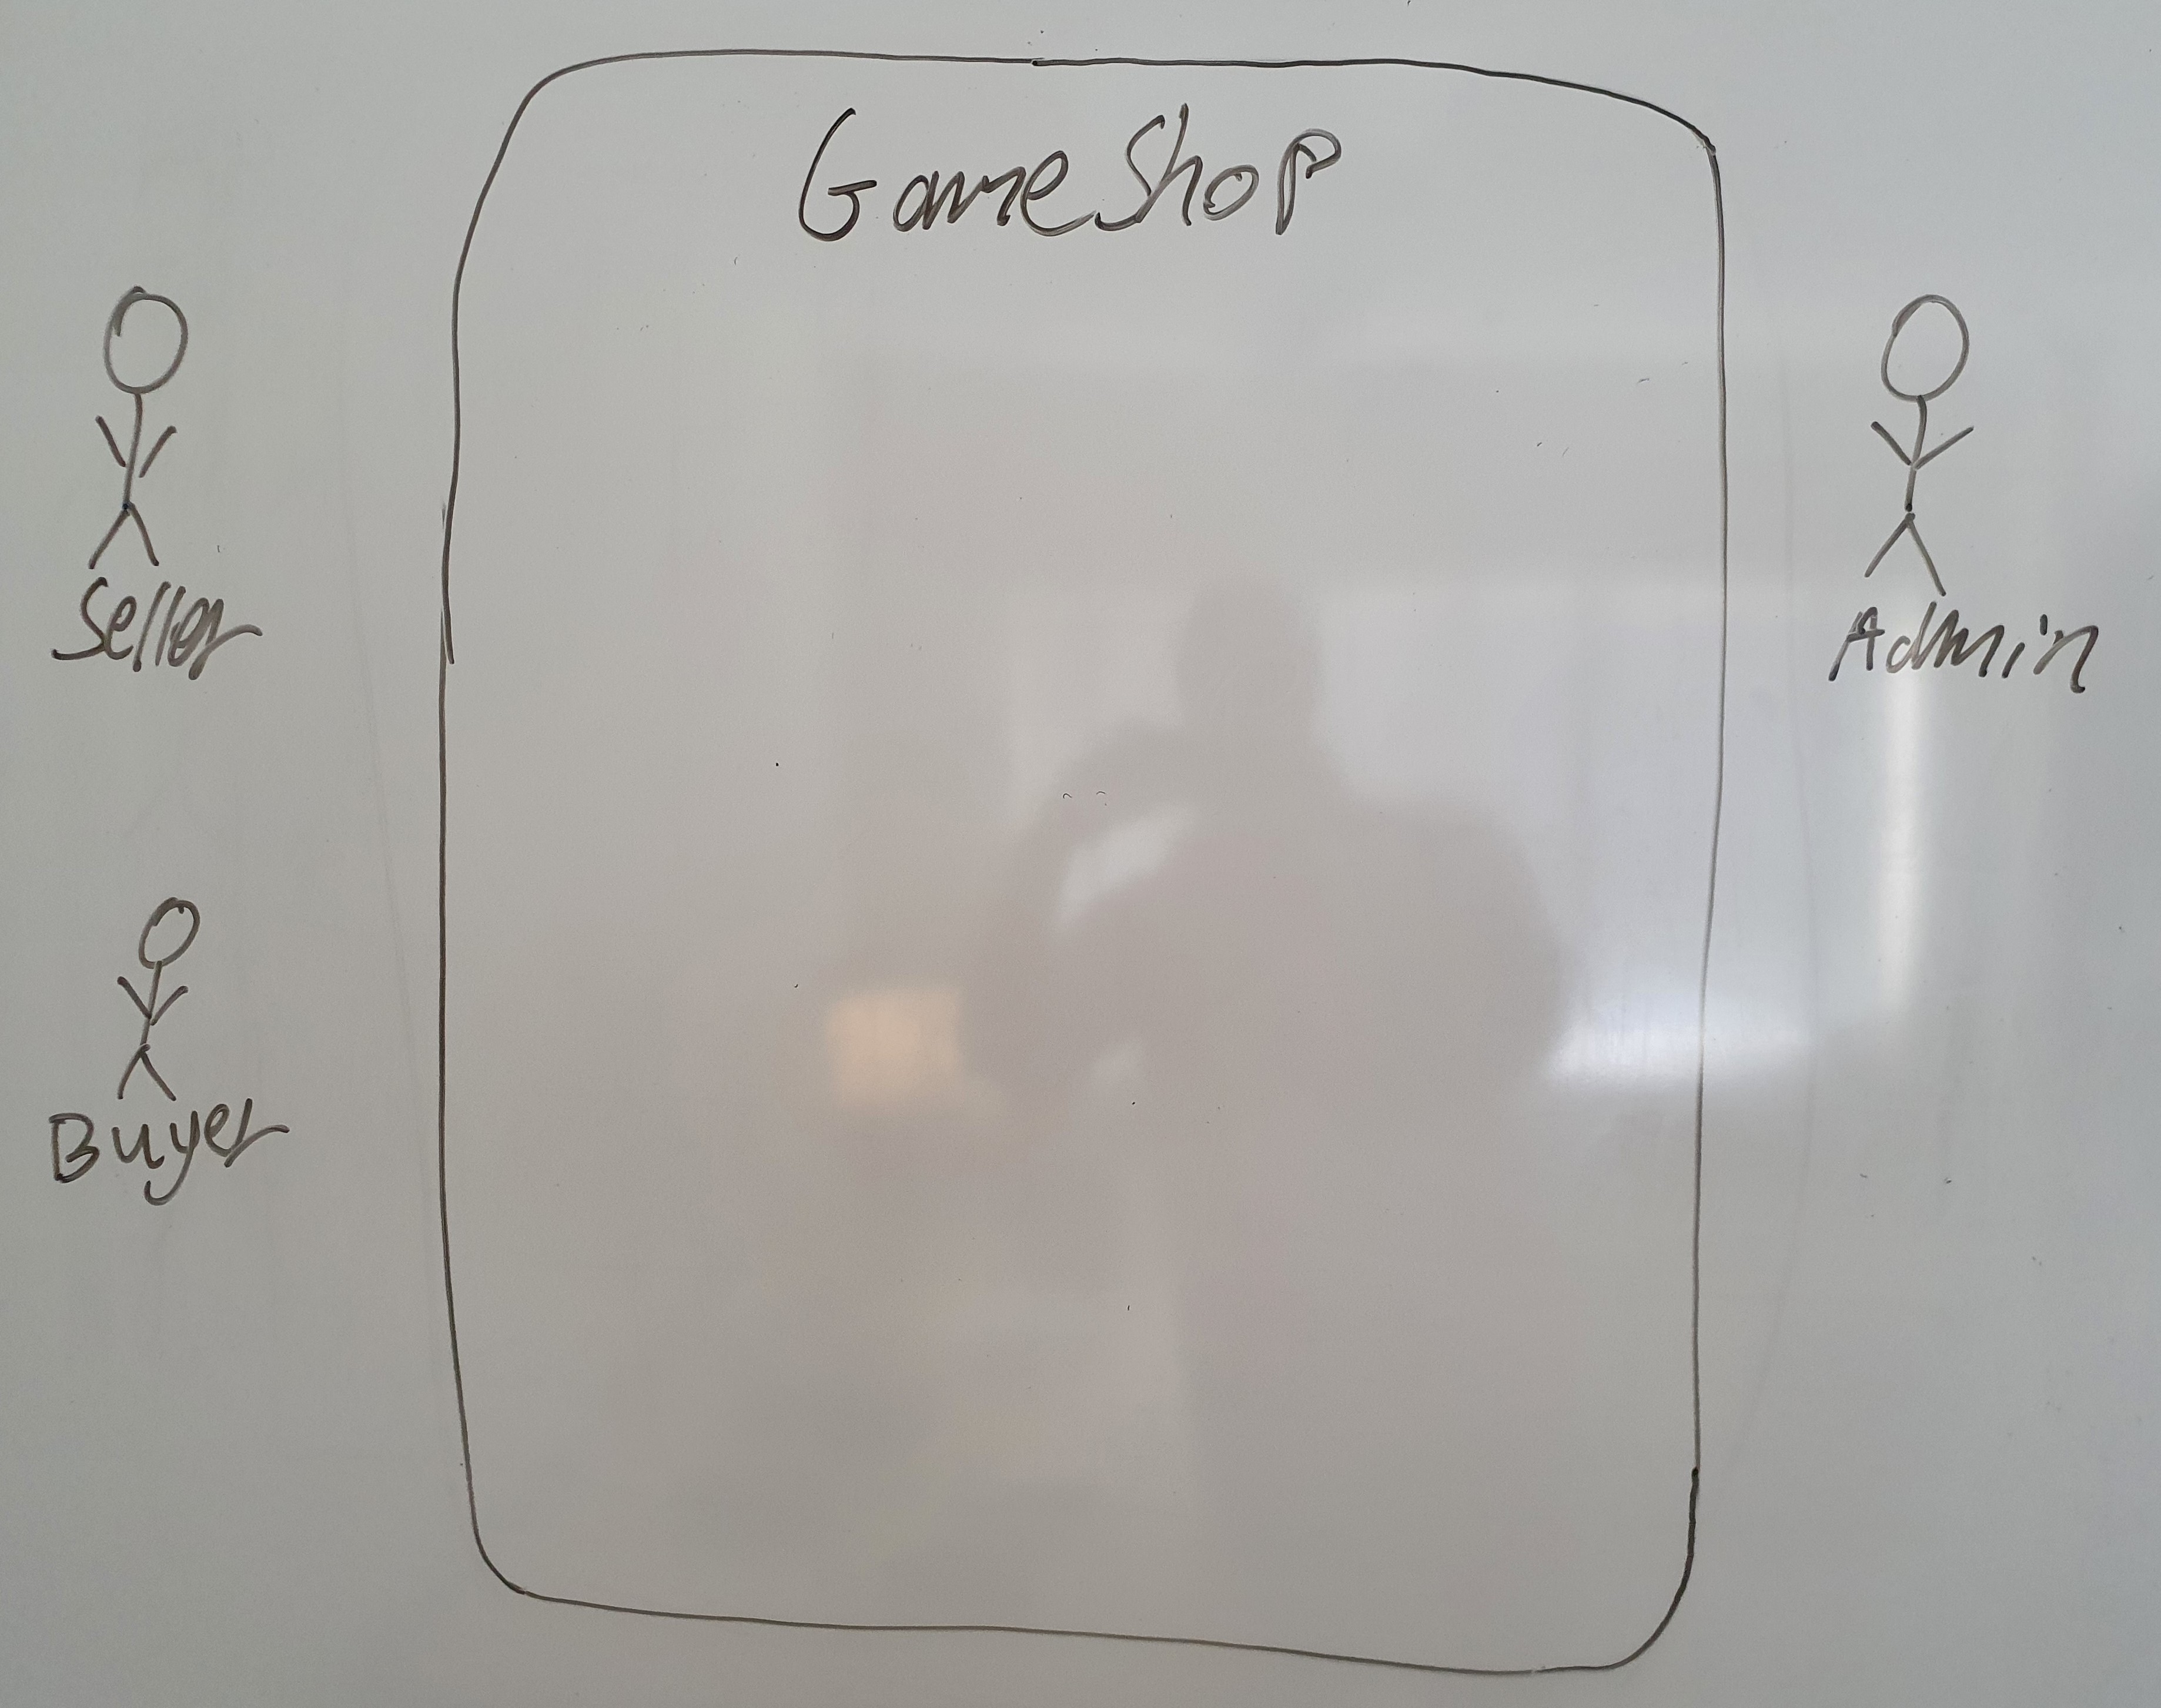 GameShop
Seller
Admin
Buyer